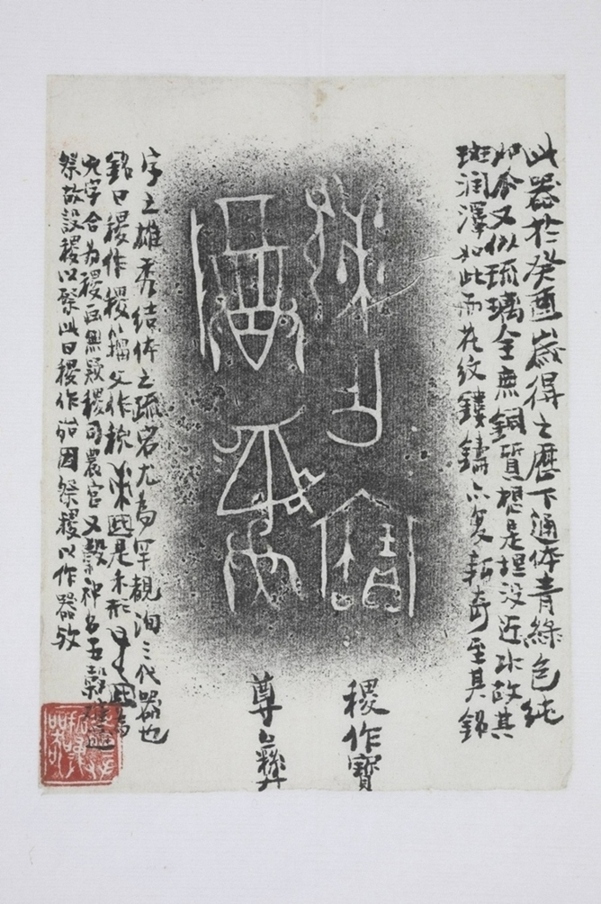 此器於癸酉歲得之歷下通体青綠色純
又似琉璃全無銅質想是埋没近水故其
斑润澤如此而花纹鏤鑄亦复新奇至其銘
稷作寶
尊彝
字之雄秀結体之疏宕尤為罕覯洵三代器也
銘曰稷作稷籀文作是禾形
字合為稷無疑稷司農官又穀神名五穀
祭故設稷以祭此曰稷作因祭稷以作器欤